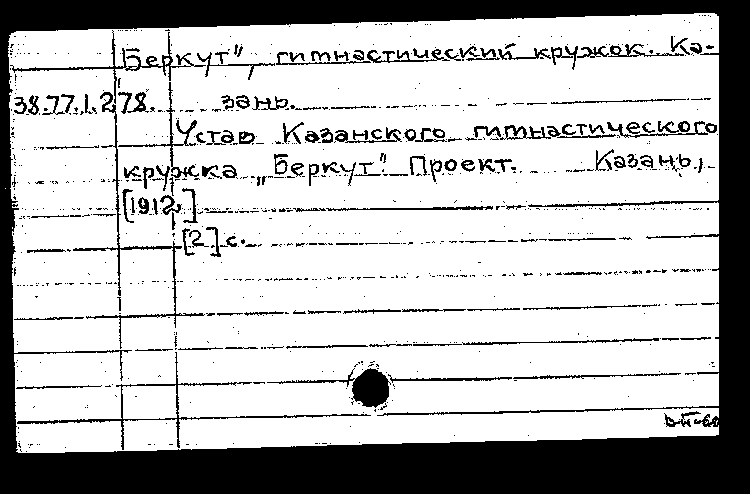 Беркут", гимнастический кружок. Ка-
38.77.1.278. зань.
Устав Казанского гимнастического
кружка „Беркут". Проект. Казань,
[1912.]
[2] с.